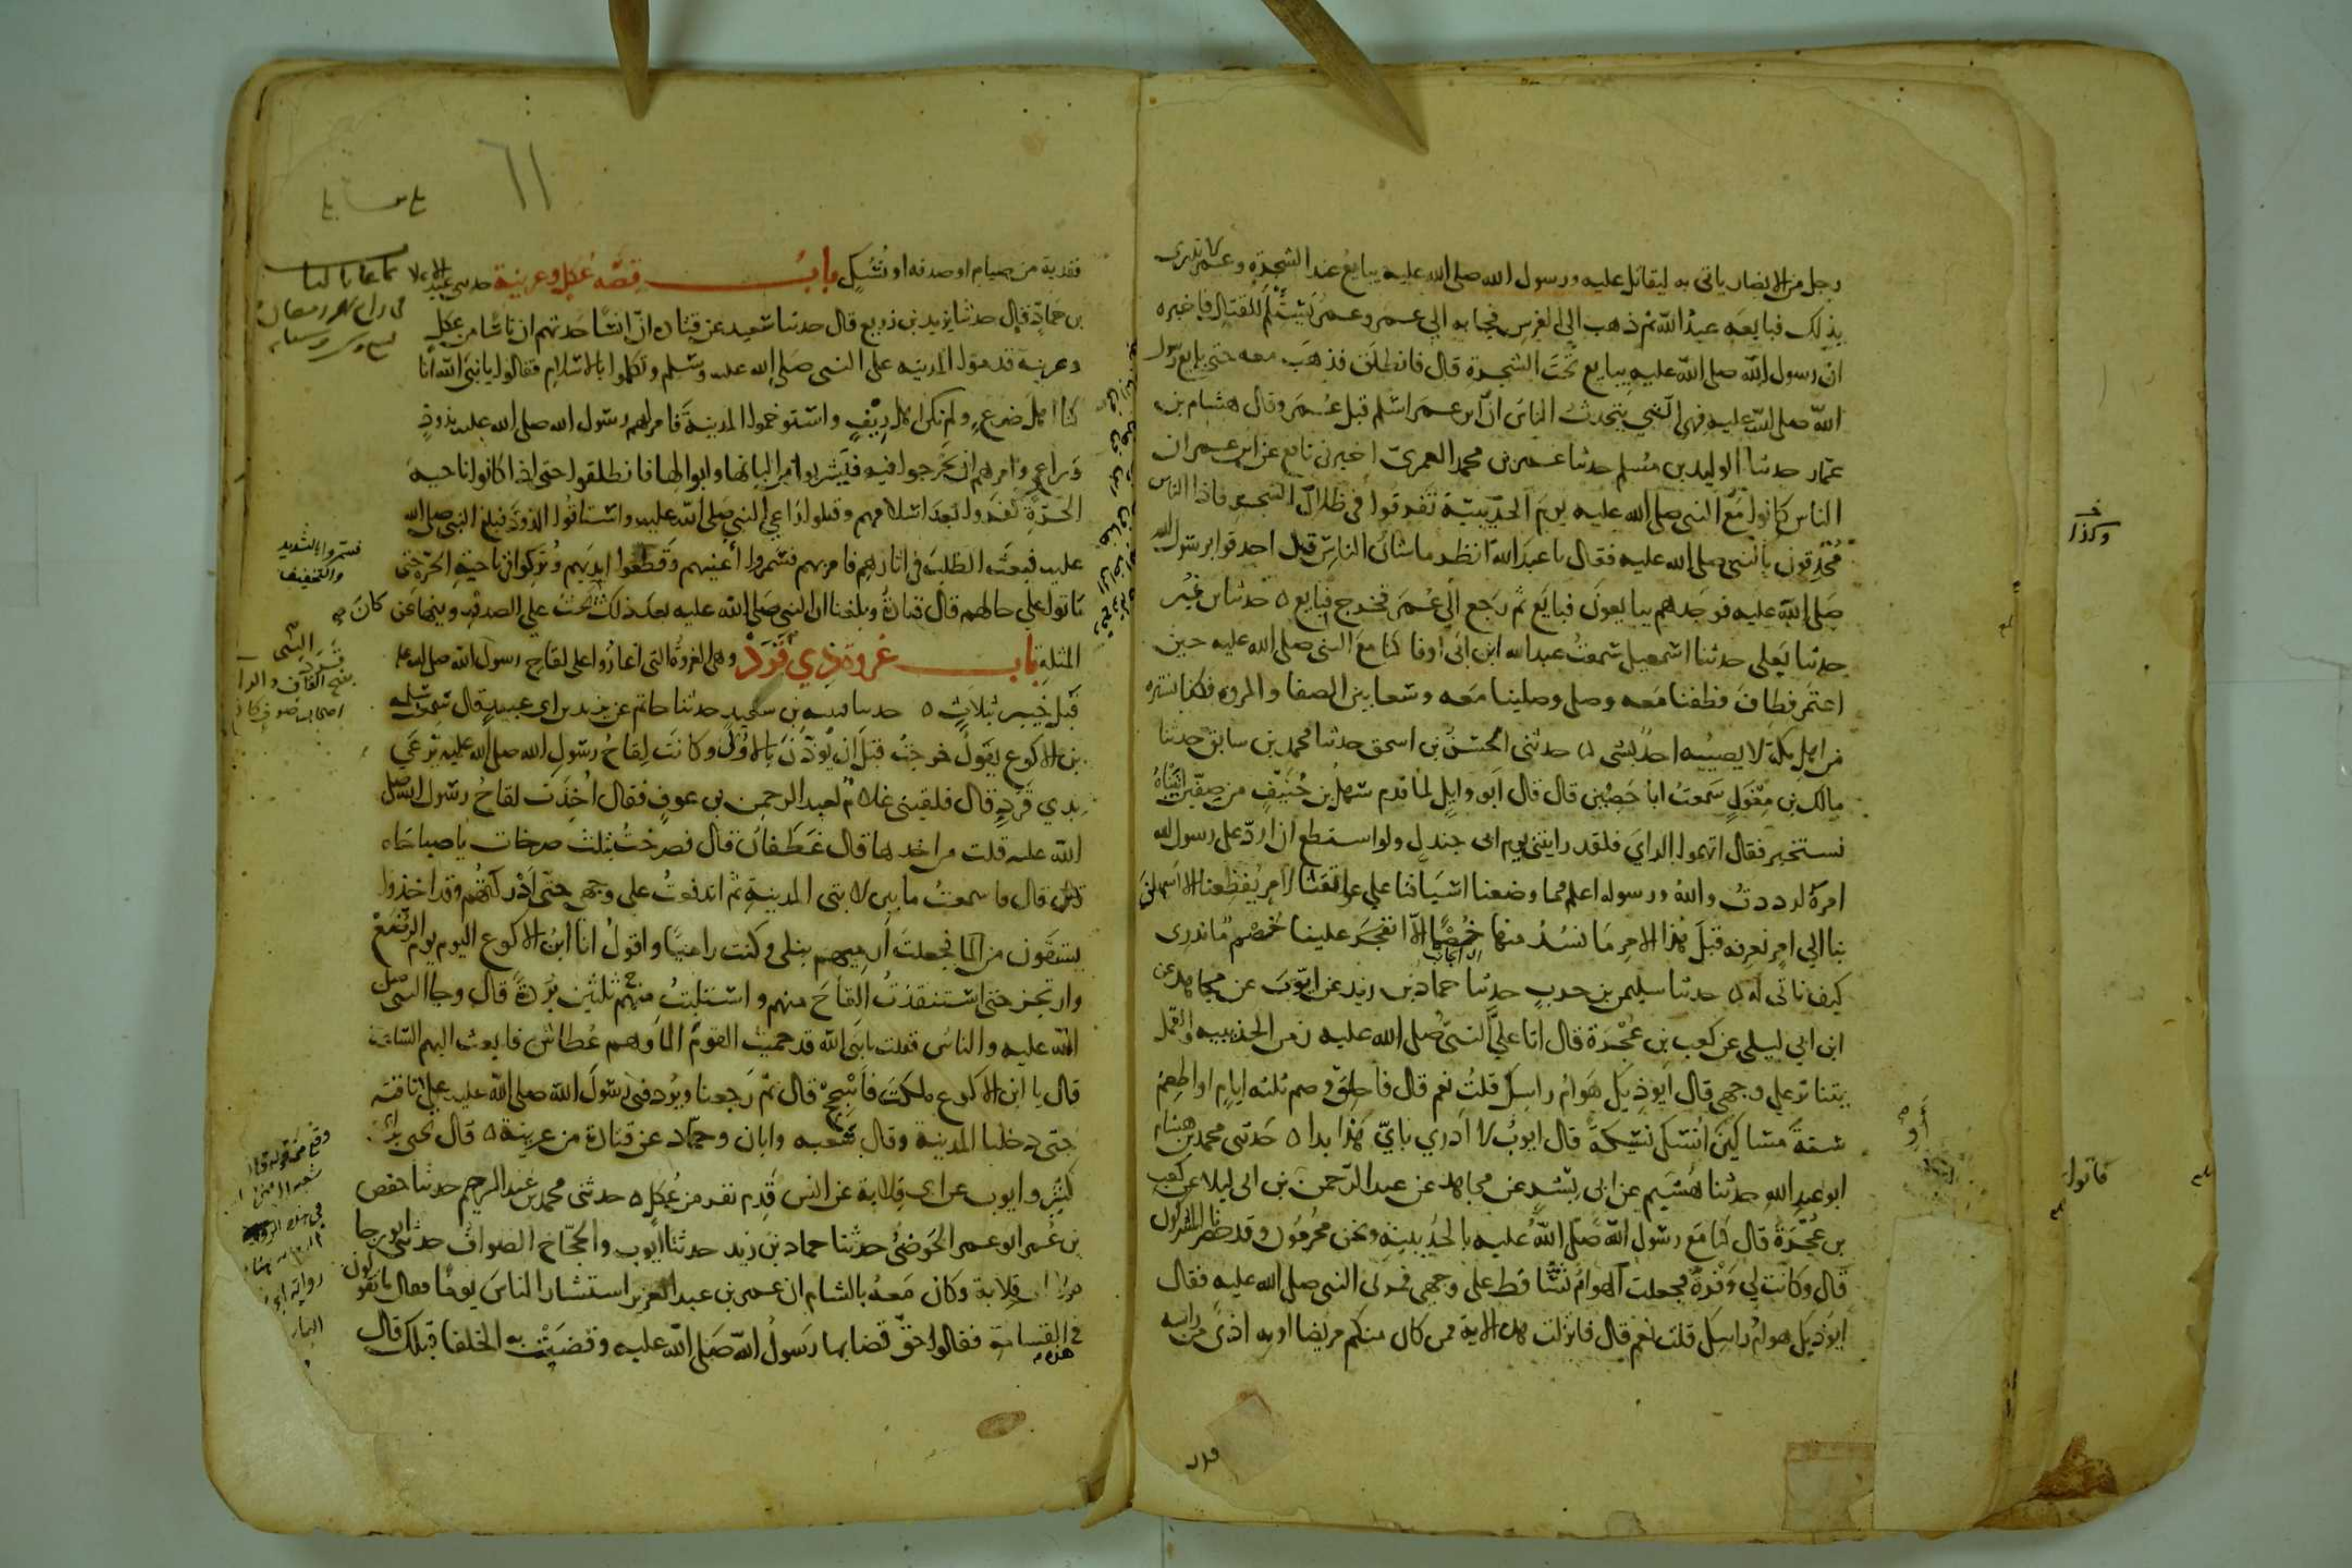 رجل من الانصار ياتى به ليقاتل عليه ورسول الله صلى الله عليه يبايع عند الشجرة وعمر لا يدرى
بذلك فبايعه عبد الله ثم ذهب الى الفرس فجا به الى عمر وعمر يستلئم للقتال فاخبره
ان رسول الله صلى الله عليه يبايع تحت الشجرة قال فانطلق فذهب معه حتى بايع رسول
الله صلى الله عليه فهى التى يتحدث الناس ان ابن عمر اسلم قبل عمر وقال هشام بن
عمار حدثنا الوليد بن مسلم حدثنا عمر بن محمد العمرى اخبرنى نافع عن ابن عمر ان
الناس كانوا مع النبى صلى الله عليه يوم الحديبية تفرقوا فى ظلال الشجر فاذا الناس
محدقون بالنبى صلى الله عليه فقال يا عبد الله انظر ما شان الناس قد احدقوا برسول الله
صلى الله عليه فوجدهم يبايعون فبايع ثم رجع الى عمر فخرج فبايع ٥ حدثنا ابن نمير
حدثنا يعلى حدثنا اسمعيل سمعت عبد الله ابن ابى اوفا كنا مع النبى صلى الله عليه حين
اعتمر فطاف فطفنا معه وصلى وصلينا معه وسعا بين الصفا والمروه فكنا نستره
من اهل مكة لا يصيبه احد بشى ٥ حدثنى الحسن بن اسحق حدثنا محمد بن سابق حدثنا
مالك بن مغول سمعت ابا حصين قال قال ابو وايل لما قدم سهل بن حنيف من صفين اتيناه
نستخبره فقال اتهموا الراى فلقد رايتنى يوم ابى جندل ولو استطع ان ارد على رسول الله
امره لرددت والله ورسوله اعلم وما وضعنا اسيافنا على عواتقنا لامر يفظعنا الا اسهلن
بنا الى امر نعرفه قبل هذا الامر ما نسد منها خصما الا انفجر علينا خصم ما ندرى
كيف ناتى له ٥ حدثنا سليمن بن حرب حدثنا حماد بن زيد عن ايوب عن مجاهد عن
ابن ابى ليلى عن كعب بن عجرة قال اتا على النبى صلى الله عليه زمن الحديبيه والقمل
يتناثر على وجهى قال ايوذيك هوام راسك قلت نعم قال فاحلق وصم ثلثه ايام او اطعم
ستة مساكين انسك نسيكة قال ايوب لا ادرى باى هذا بدا ٥ حدثنى محمد بن هشام
ابو عبد الله حدثنا هشيم عن ابى بشر عن مجاهد عن عبد الرحمن بن ابى ليلا عن كعب
بن عجرة قال كنا مع رسول الله صلى الله عليه بالحديبية ونحن محرمون وقد حصرنا المشركون
قال وكانت لى وفرة فجعلت الهوام تساقط على وجهى فمر بى النبى صلى الله عليه فقال
ايوذيك هوام راسك قلت نعم قال فانزلت هذه الاية فمن كان منكم مريضا او به اذى من راسه
وكذا
فاتوا
٦١
ففدية من صيام او صدقه او نسك باب قصة عكل وعرينة حدثنى عبد الاعلا
بن حماد قال حدثنا يزيد بن زريع قال حدثنا سعيد عن قتادة ان انسا حدثهم ان ناسا من عكل
وعرينة قدموا المدينه على النبى صلى الله عليه وسلم وتكلموا بالاسلام فقالوا يا نبى الله انا
كنا اهل ضرع ولم نكن اهل ريف واستوخموا المدينة فامر لهم رسول الله صلى الله عليه بذود
وراعى وامرهم ان يخرجوا فيه فيشربوا من البانها وابوالها فانطلقوا حتى اذا كانوا ناحية
الحرة كفروا بعد اسلامهم وقتلوا راعى النبى صلى الله عليه واستاقوا الذود فبلغ النبى صلى الله
عليه فبعث الطلب فى اثارهم فامر بهم فسمروا اعينهم وقطعوا ايديهم وتركوا فى ناحية الحرة حتى
ماتوا على حالهم قال قتادة وبلغنا ان النبى صلى الله عليه بعد ذلك كان يحث على الصدقة وينها عن
المثلة باب غزوة ذى قرد وهى الغزوة التى اغاروا على لقاح رسول الله صلى الله عليه
قبل خيبر بثلاث ٥ حدثنا قتيبه بن سعيد حدثنا حاتم عن يزيد بن ابى عبيد قال سمعت سلمه
بن الاكوع يقول خرجت قبل ان يوذن بالاولى وكانت لقاح رسول الله صلى الله عليه ترعى
بذى قرد قال فلقينى غلام لعبد الرحمن بن عوف فقال اخذت لقاح رسول الله صلى
الله عليه قلت من اخذها قال غطفان قال فصرخت بثلث صرخات يا صباحاه
قال فاسمعت ما بين لابتى المدينة ثم اندفعت على وجهى حتى ادركتهم وقد اخذوا
يستقون من الما فجعلت ارميهم بنبلى وكنت راميا واقول انا ابن الاكوع اليوم يوم الرضع
وارتجز حتى استنقذت اللقاح منهم واستلبت منهم ثلثين بردة قال وجا النبى صلى
الله عليه والناس فقلت يا نبى الله قد حميت القوم الما وهم عطاش فابعث اليهم الساعة
قال يا ابن الاكوع ملكت فاسجح قال ثم رجعنا ويردفنى رسول الله صلى الله عليه على ناقته
حتى دخلنا المدينة وقال شعبه وابان وحماد عن قتادة من عرينة ٥ قال يحيى بن ابى
كثير وايوب عن ابى قلابة عن انس قدم نفر من عكل ٥ حدثنى محمد بن عبد الرحيم حدثنا حفص
بن عمر ابو عمر الحوضى حدثنا حماد بن زيد حدثنا ايوب والحجاج الصواف حدثنى ابو رجا
مولى ابى قلابة وكان معه بالشام ان عمر بن عبد العزيز استشار الناس يوما فقال ما تقولون
فى هذه القسامة فقالوا حق قضا بها رسول الله صلى الله عليه وقضت به الخلفا قبلك قال
فسمروا بالتشديد
والتخفيف